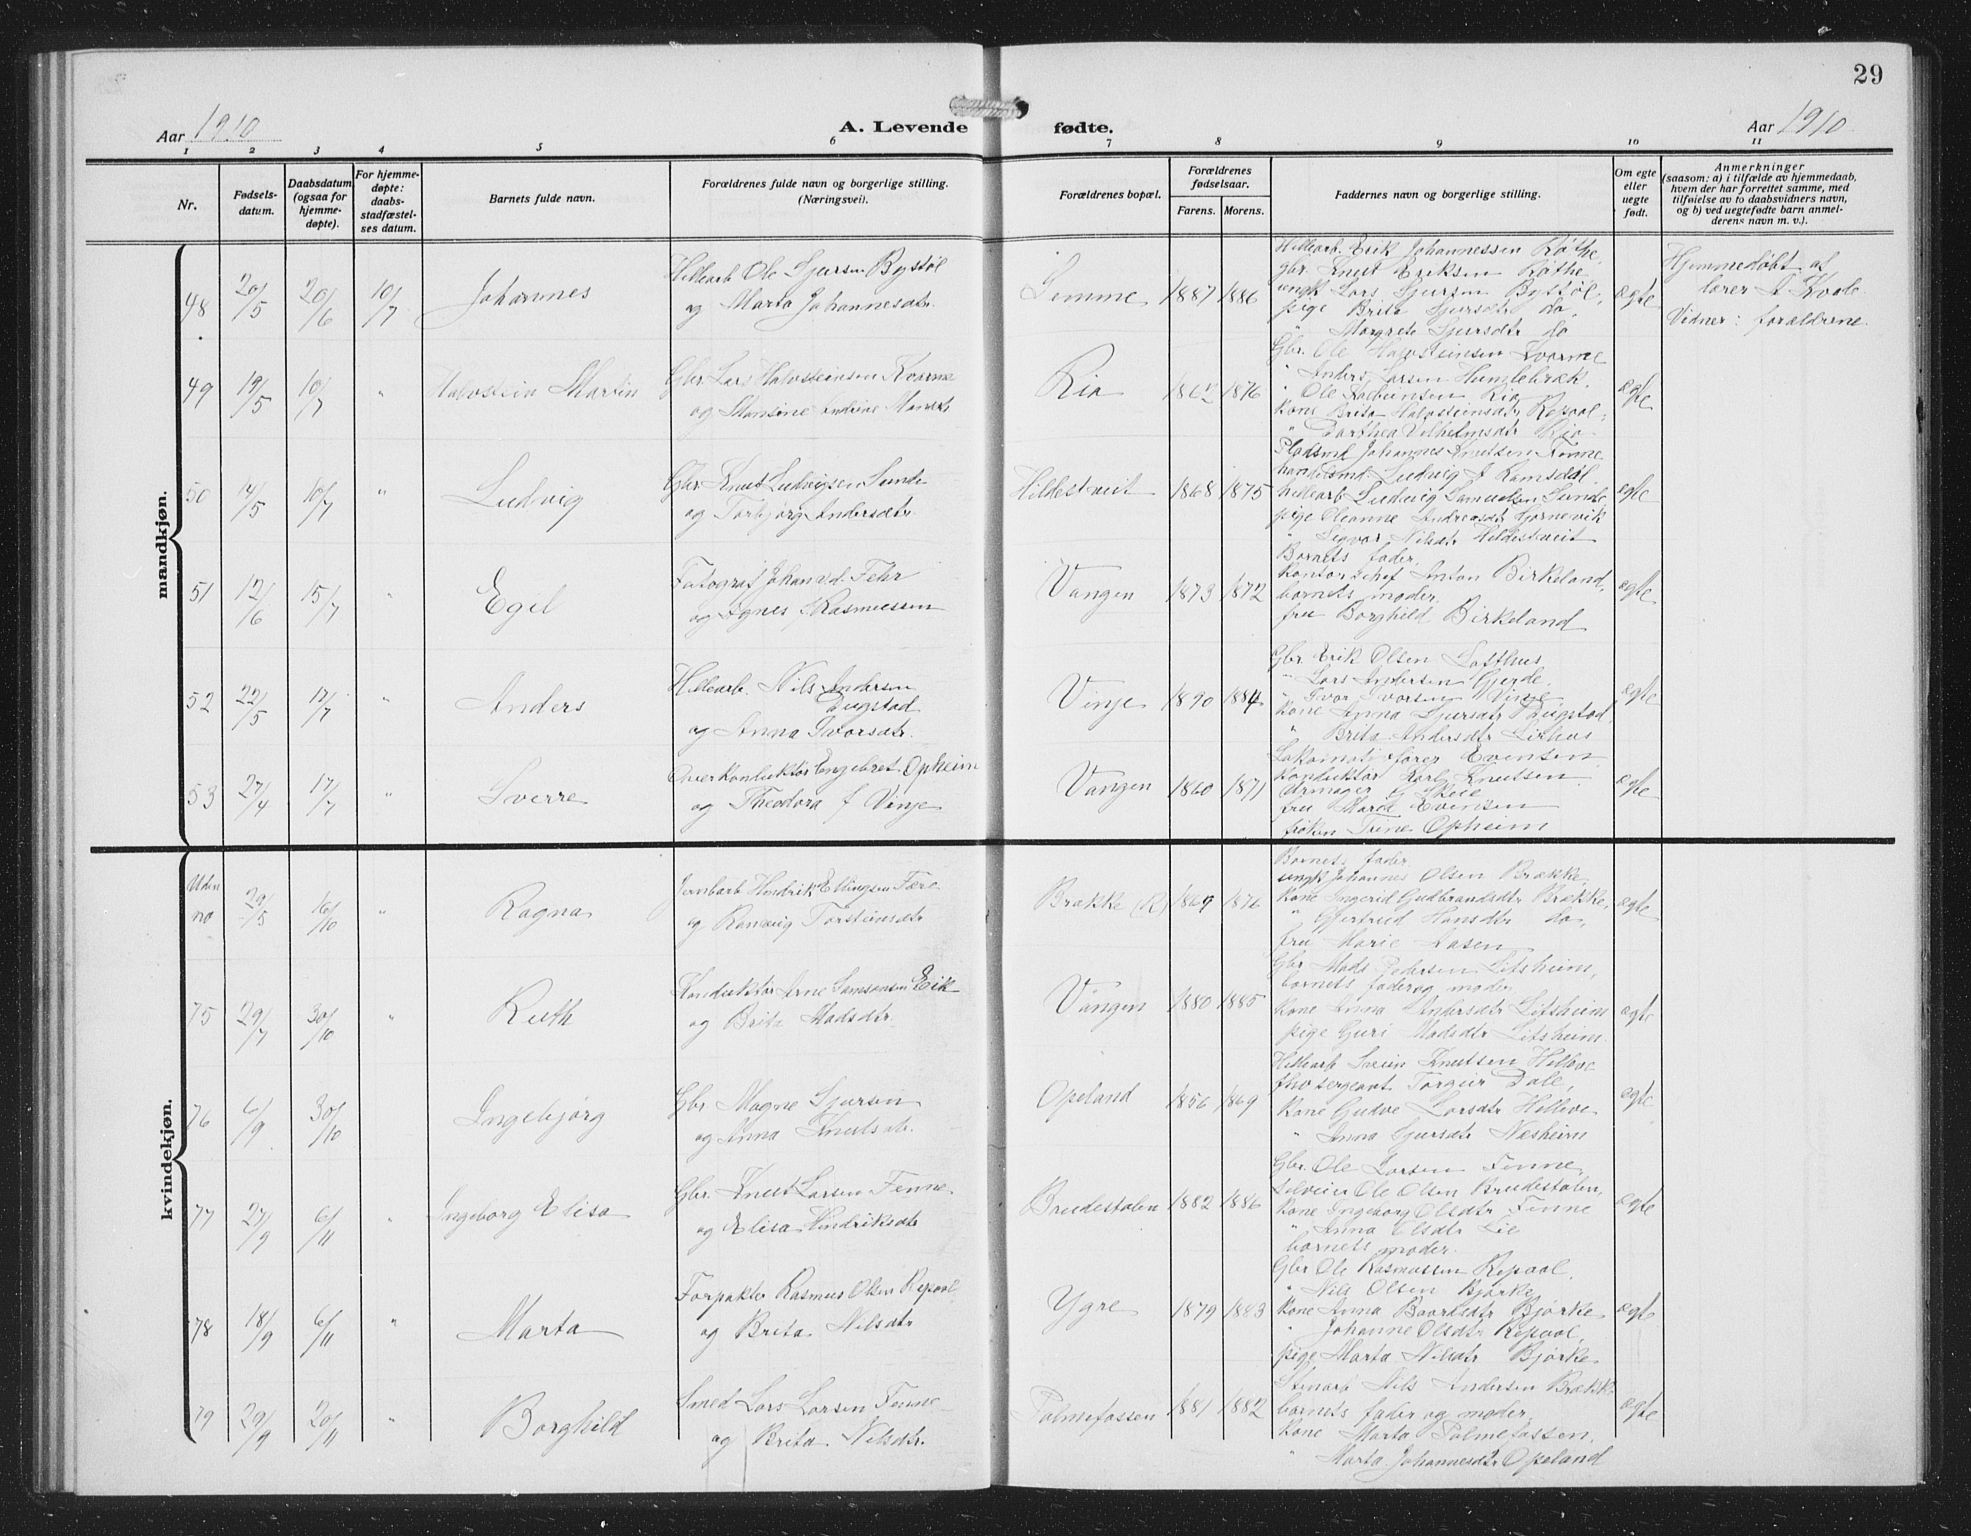 29
Aar 1910
A. Levende fødte.
Aar 1910
1 2 3 4 5 6 7 8 9 10 11
Nr.
Fødsels-
datum.
Daabsdatum
(ogsaa for
hjemme-
døpte).
For hjemme-
døpte:
daabs-
stadfæstel-
ses datum.
Barnets fulde navn.
Forældrenes fulde navn og borgerlige stilling.
(Næringsvei).
Forældrenes bopæl.
Forældrenes
fødselsaar.
Farens. Morens.
Faddernes navn og borgerlige stilling.
Om egte
eller
uegte
født.
Anmerkninger
(saasom: a) i tilfælde av hjemmedaab,
hvem der har forrettet samme, med
tilføielse av to daabsvidners navn,
og b) ved uegtefødte barn anmel-
derens navn m. v.).
mandkjøn.
48 20/5 20/6 10/7 Johannes
Hellearb Ole Sjursen Bystøl
og Marta Johannesdtr.
Gimme 1887 1886
Hellearb. Erik Johannessen Røthe,
gbr. Knut Eriksen Røthe
ungk Lars Sjursen Bystøl,
pige Brita Sjursdtr do,
" Margrete Sjursdtr do
ægte
Hjemmedøbt af
lærer
Vidner: forældrene.
49 19/5 10/7 " Halvstein Martin
Gbr Lars Halvsteinsen Kvarme
og Mansine Andrine Monsdtr
Rio 1862 1876
Gbr. Ole Halvsteinsen Kvarme
" Anders Larsen Humlebræk,
" Ole Rio
kone Brita Halvsteinsdtr Repaal,
" Dorthea Vilhelmsdtr Rio
ægte
50 14/5 10/7 " Ludvig
Gbr Knut Ludvigsen Sunde
og Torbjørg Andersdtr.
Hildestveit 1868 1875
Pladsmd Johannes Knutsen Finne
handelsmd. Ludvig J Ramsdal
hellearb Ludvig Samuelsen Sunde
pige Oleanne Andreasdtr Gjørnevik
" Nilsdtr Hildestveit
ægte
51 12/6 15/7 " Egil
Fotograf Johan v.d. Fehr
og Agnes f Rasmussen
Vangen 1873 1872
Barnets fader,
kontorchef Anton Birkeland,
barnets moder.
fru Borghild Birkeland
ægte
52 22/5 17/7 " Anders
Hellearb. Nils Andersen
Rugstad
og Anna Ivarsdtr.
Vinje 1890 1884
Gbr Erik Olsen Lofthus
" Lars Andersen Gjerde.
" Ivar Ivarsen Vinje
kone Anna Sjursdtr Rugstad,
" Brita Andersdtr Lirhus
ægte
53 27/4 17/7 " Sverre
Overkonduktør Engebret Opheim
og Theodora f Vinje
Vangen 1860 1871
Lokomotivfører Evensen
konduktør Karl Knutsen
urmager G Skeie
fru Maria Evensen
frøken Trine Opheim
ægte
kvindekjøn.
Uden
no 29/5 16/10 " Ragna
Jernbarb Hendrik Ellingsen Fære
og Ranveig Torsteinsdtr
Brække (R) 1869 1876
Barnets fader.
ungk Johannes Olsen Brække,
kone Ingerid Gudbrandsdtr Brække,
" Gjertrud Hansdtr do,
fru Marie Aasen
ægte
75 29/7 30/10 " Ruth
Konduktør Arne Samsonsen Eik
og Brita Madsdtr.
Vangen 1880 1885
Gbr Mads Pedersen Litsheim,
barnets fader og moder
kone Anna Andersdtr Litsheim
pige Guri Madsdtr Litsheim.
ægte
76 6/9 30/10 " Ingebjørg
Gbr Magne Sjursen
og Anna Knutsdtr.
Opeland 1856 1869
Hellearb Svein Knutsen Helleve
fhv sergeant Torgeir Dale,
kone Gudve Larsdtr Helleve
" Anna Sjursdtr Nesheim
ægte
77 27/9 6/11 Ingeborg Elisa
Gbr. Knut Larsen Finne.
og Elisa Hendriksdtr
Brudestolen 1882 1886
Gbr. Ole Larsen Finne,
selveier Ole Olsen Brudestolen,
kone Ingeborg Olsdtr Finne
" Anna Olsdtr Lie
barnets moder.
ægte
78 18/9 6/11 " Marta
Forpakter Rasmus Olsen Repaal
og Brita Nilsdtr
Ygre 1879 1883
Gbr Ole Rasmussen Repaal,
" Nils Olsen Bjørke,
kone Anna Baardsdtr Bjørke
" Johanne Olsdtr Repaal,
pige Marta Nilsdtr Bjørke
ægte
79 29/9 20/11 " Borghild
Smed Lars Larsen Finne
og Brita Nilsdtr.
Palmefossen 1881 1882
Stenarb Nils Andersen Brække
barnets fader og moder,
kone Marta Palmefossen,
" Marta Johannesdtr Opeland
ægte